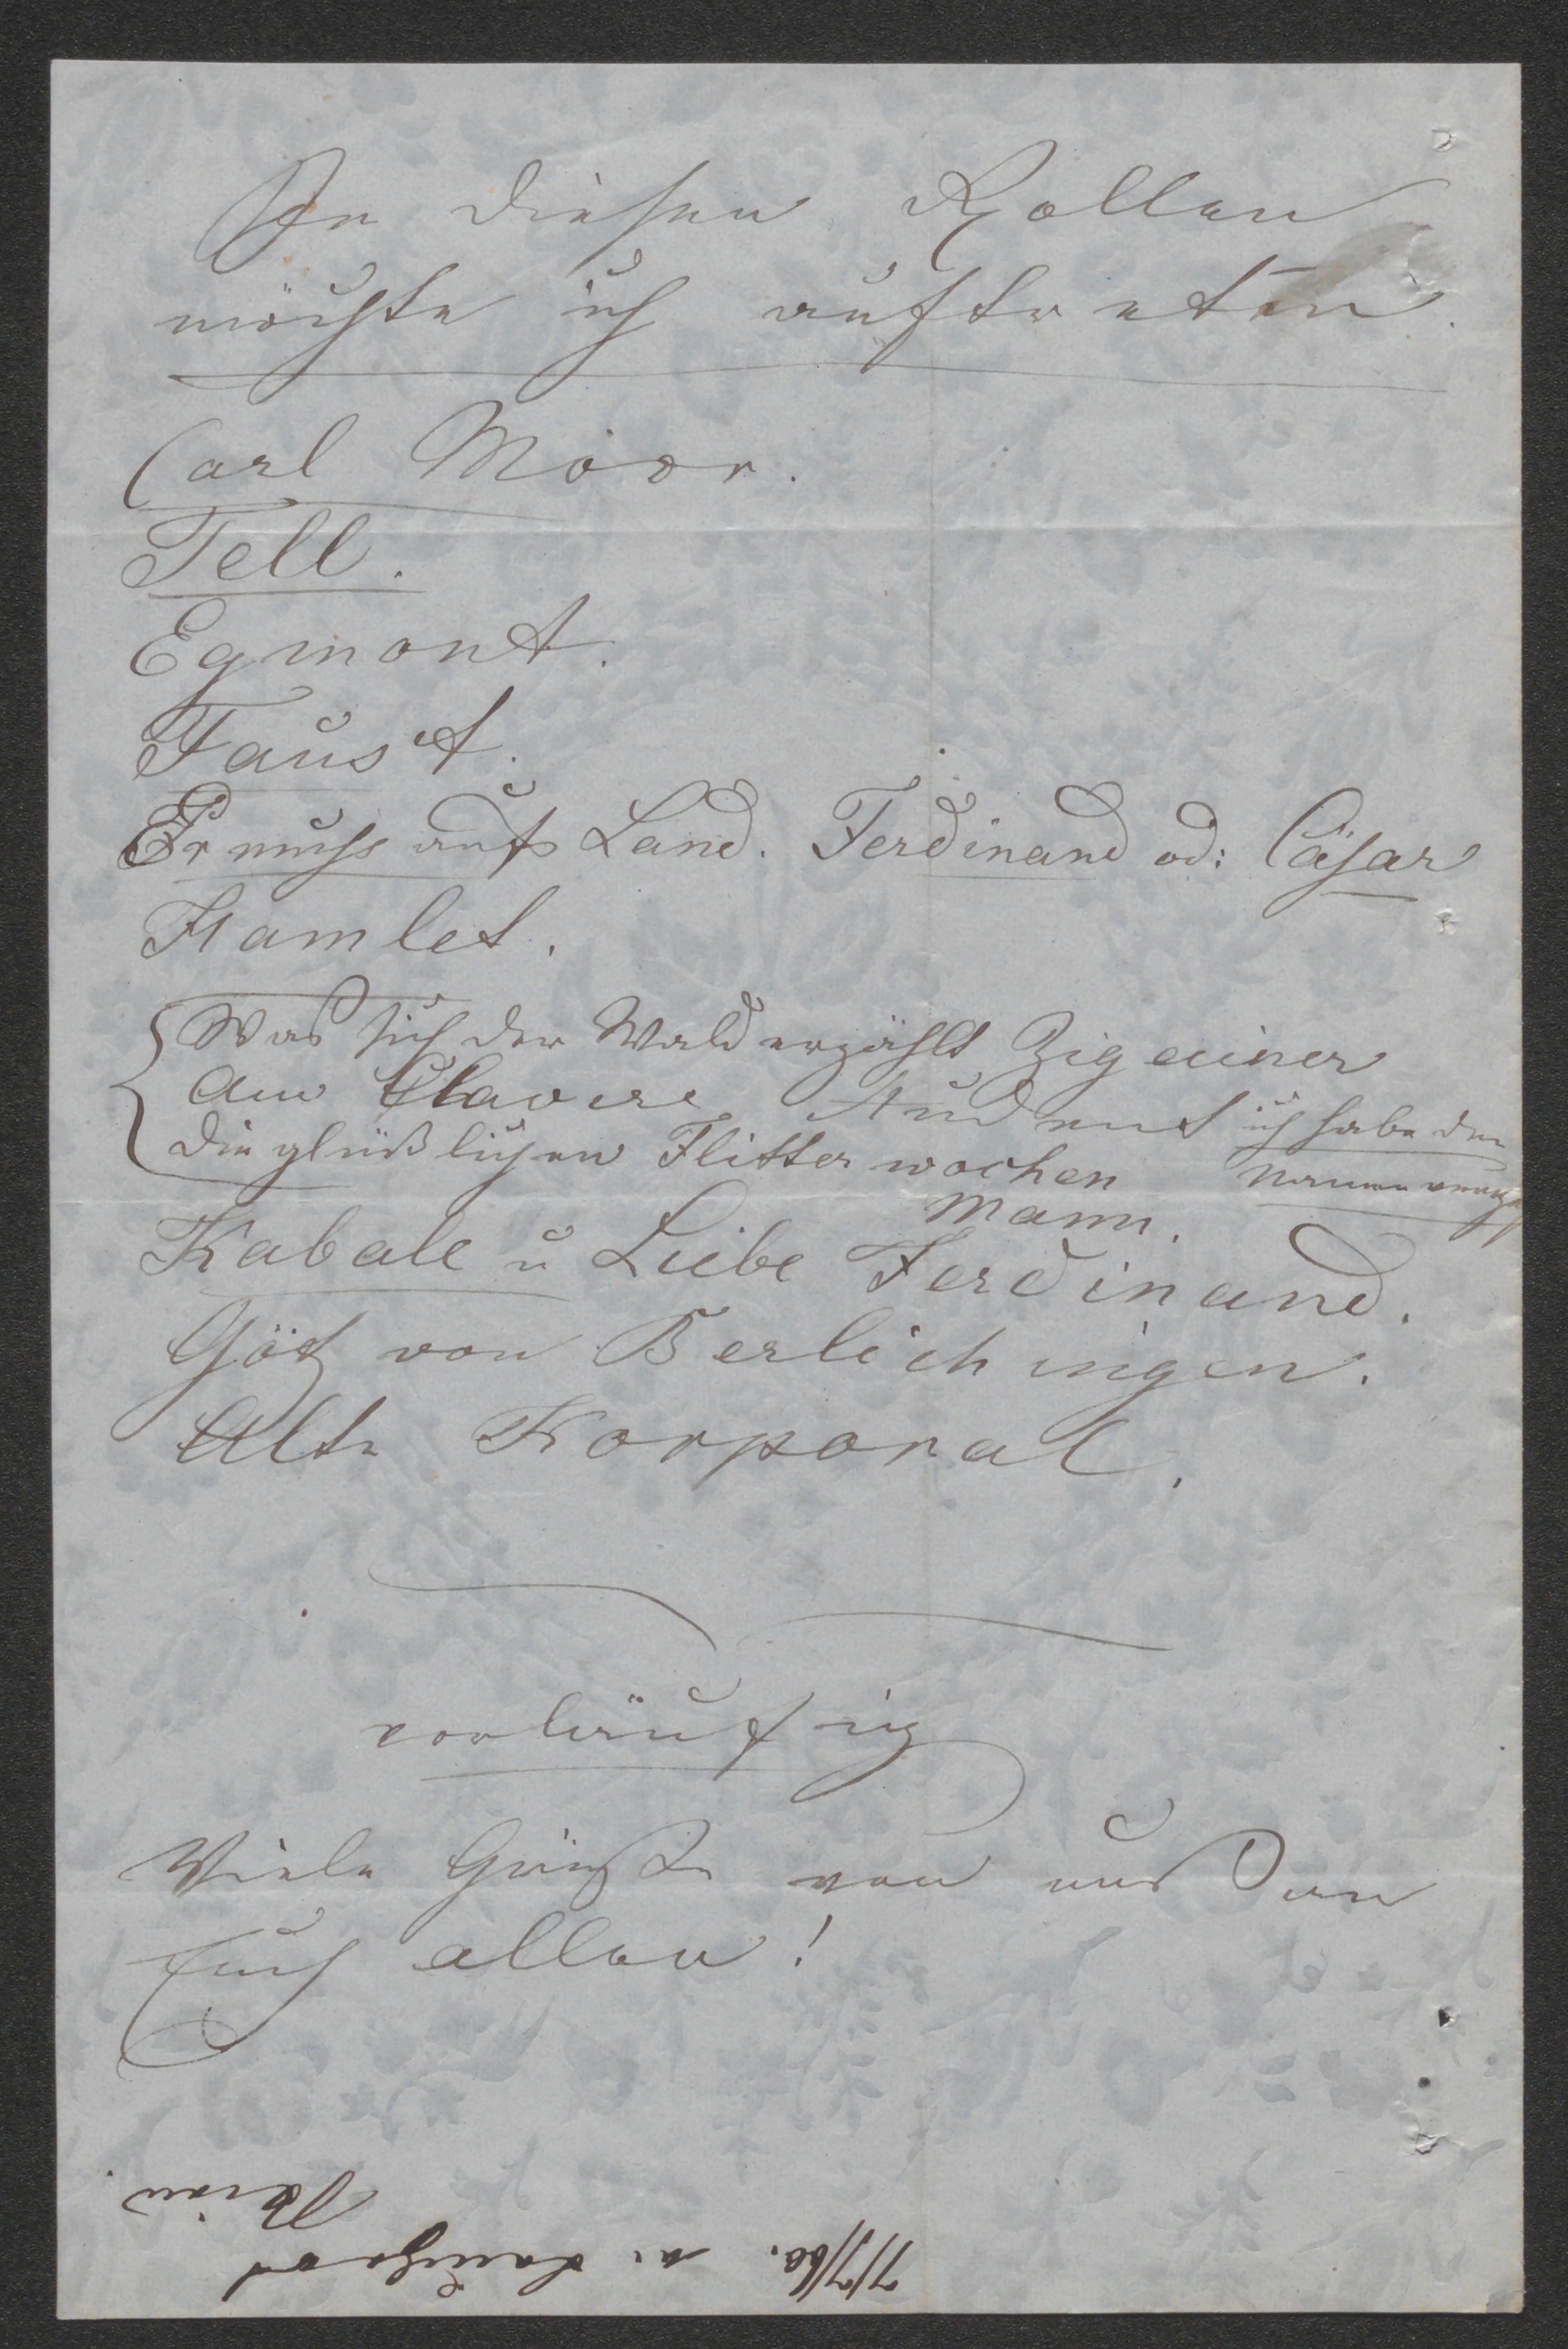 In diesen Rollen
möchte ich auftreten.
Carl Moor.
Tell.
Egmont.
Faust.
Er muss aufs Land. Ferdinand od: Cäsar
Hamlet.
Was sich der Wald erzählt Zigeiner
Am Clavier. Student ich habe den
Die glüklichen Flitterwochen Namen
Mann.
Kabale u Liebe Ferdinand.
Götz von Berlichingen.
Alte Korporal.
vorläufig
Viele Grüße von uns an
Euch allen!
7/7/60. v.